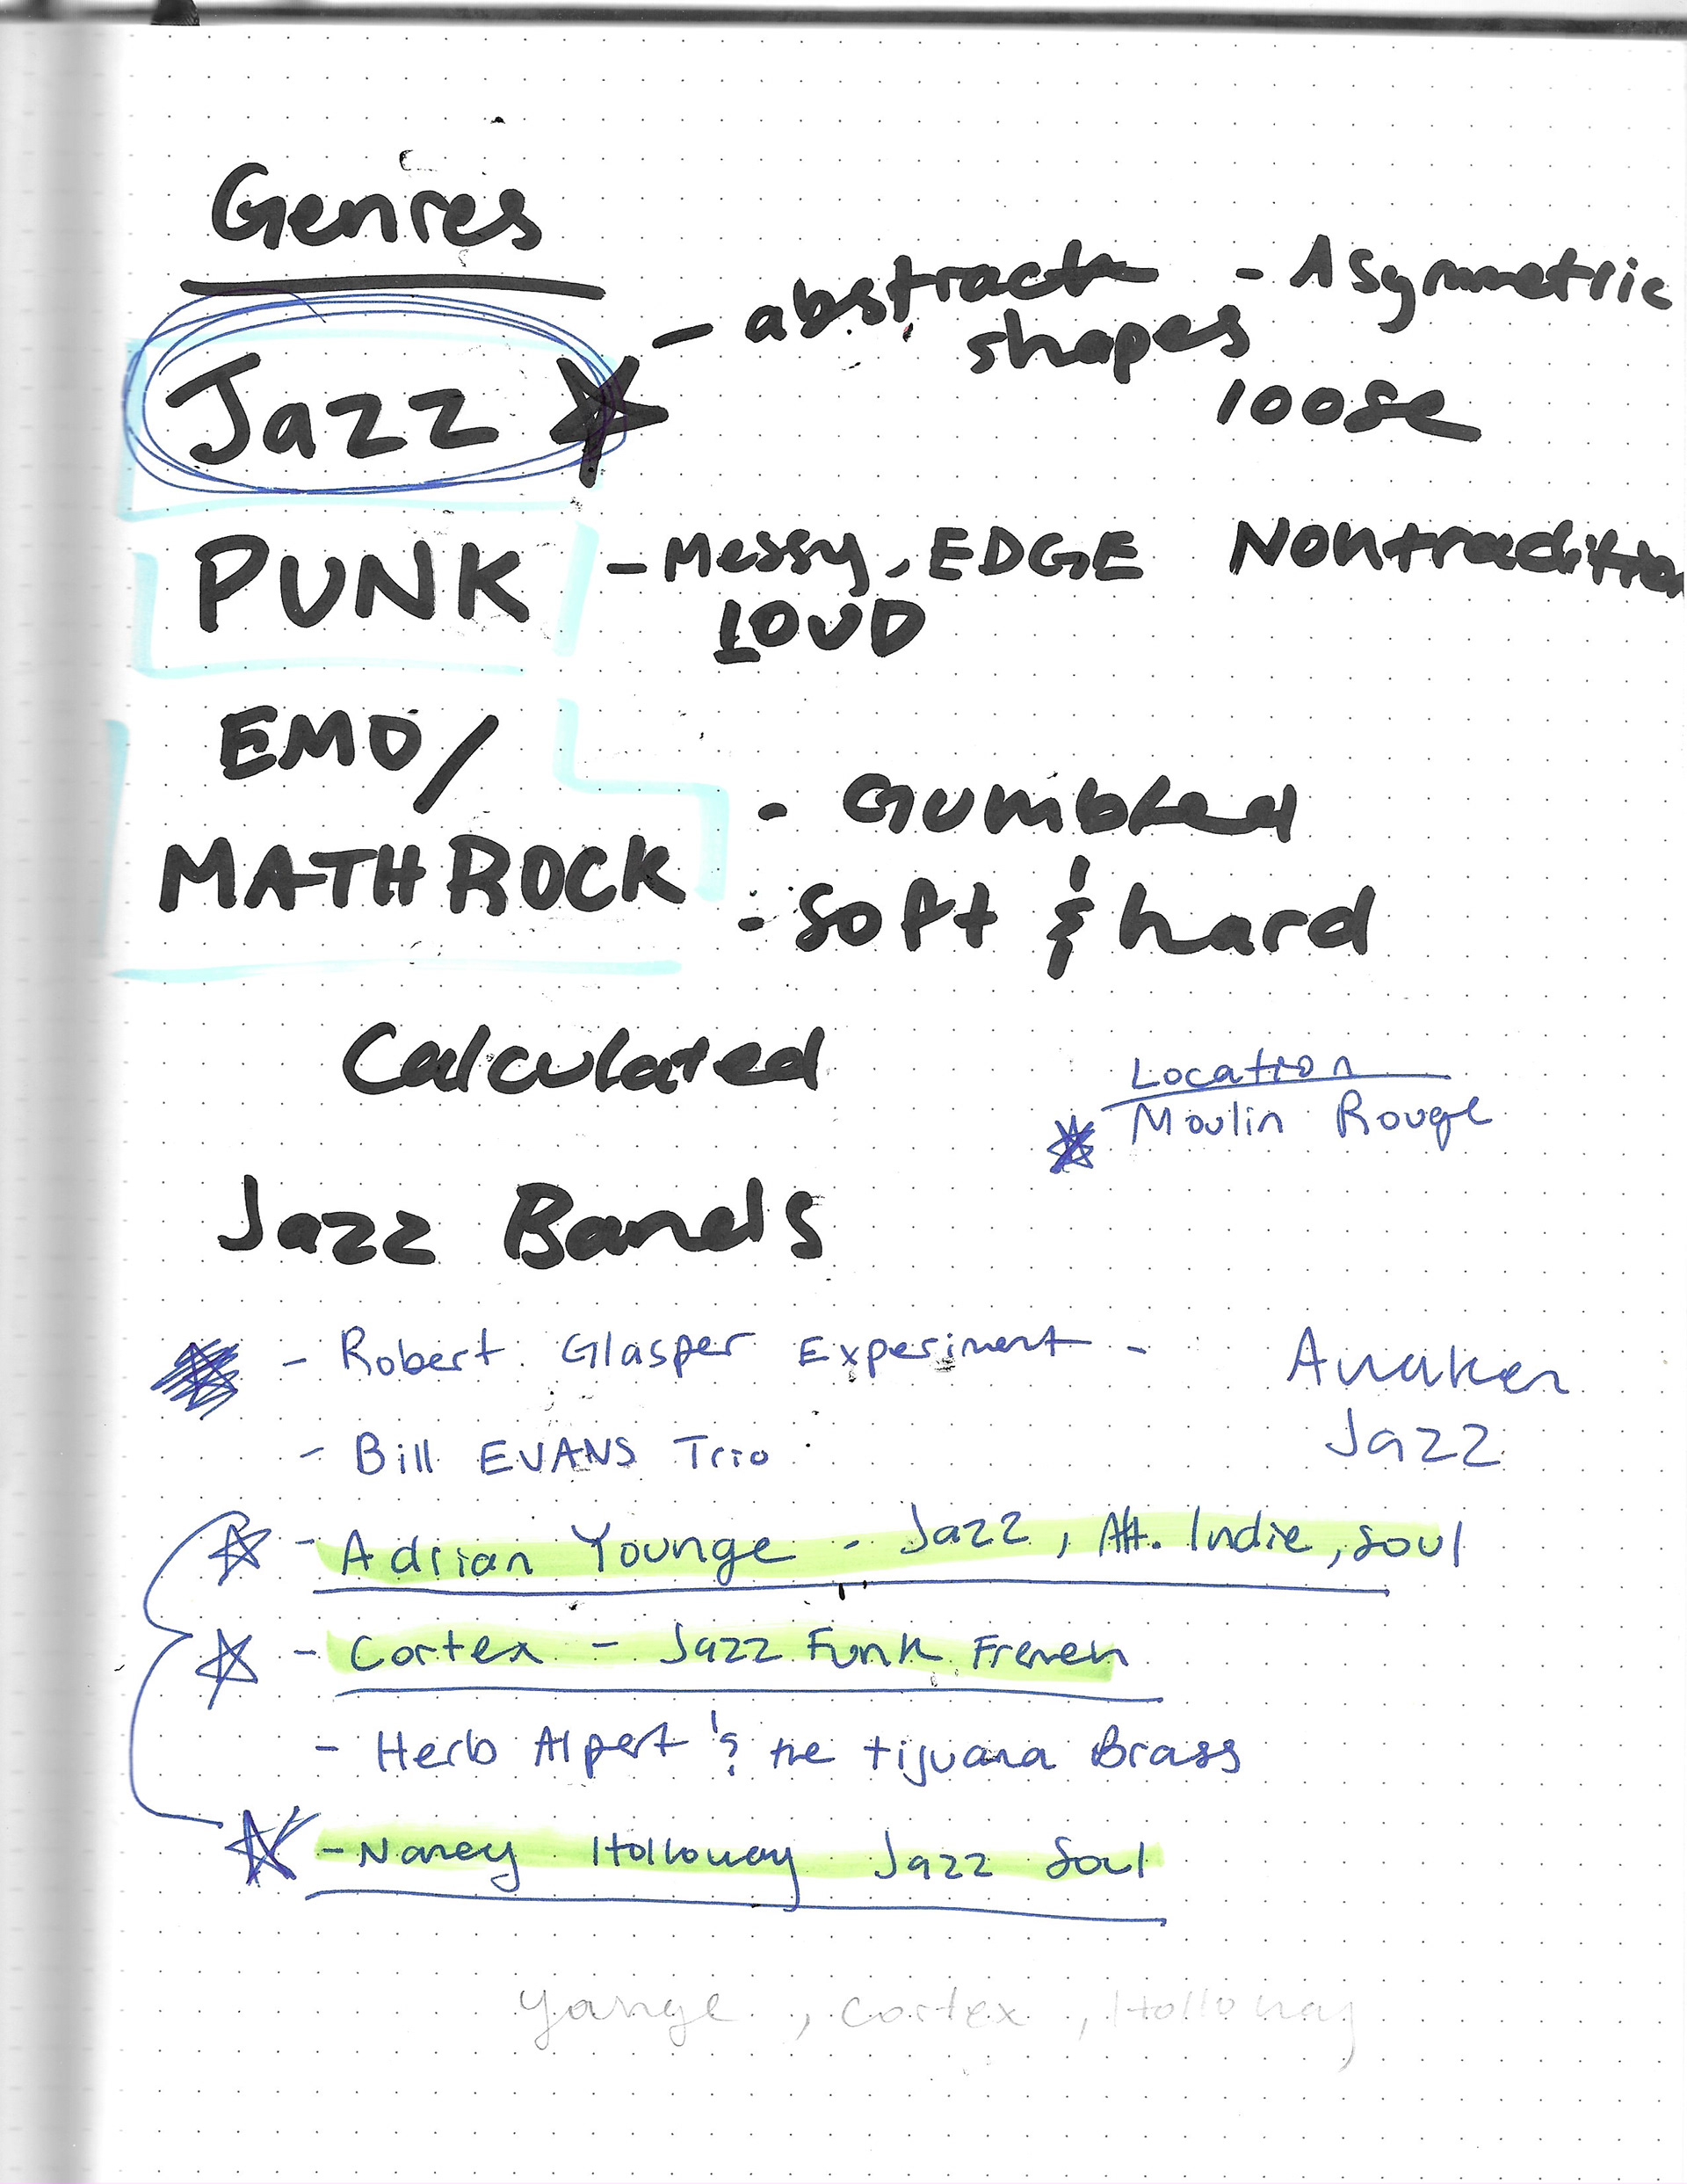 Genres
- abstract - Asymmetric
shapes
loose
Jazz
PUNK - Messy, EDGE Nontradition
LOUD
EMO/
MATH ROCK
- Gumbled
- Soft & hard
Calculated
Location
Moulin Rouge
Jazz Bands
- Robert Glasper Experiment -
- Bill EVANS Trio
Awaken
Jazz
- Adrian Younge - Jazz, Alt. Indie, soul
- Cortex - Jazz Funk French
- Herb Alpert & the tijuana Brass
- Nancy Holloway Jazz Soul
Yange, Cortex, Holloway